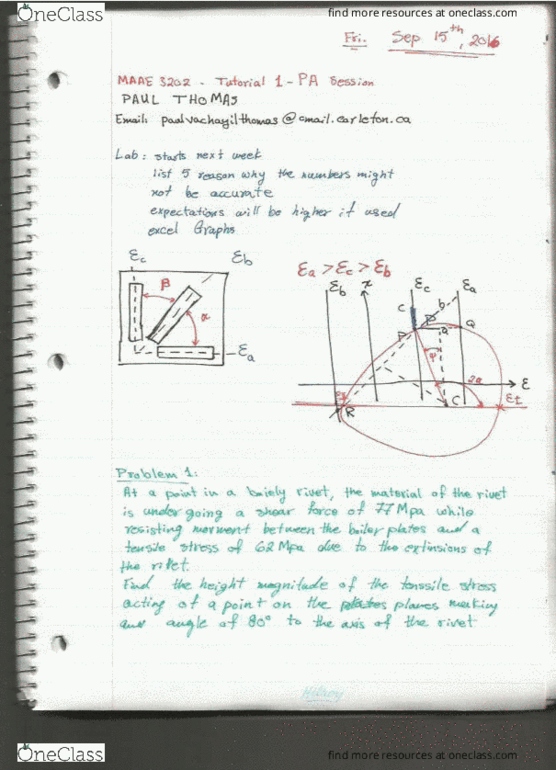 OneClass
find more resources at oneclass.com
Fri. Sep. 15th, 2016
MAAE 3202 - Tutorial 1 - PA Session
PAUL THOMAS
Email: paulvachayilthomas@cmail.carleton.ca
Lab: starts next week
list 5 reason why the numbers might
not be accurate
expectations will be higher if used
excel Graphs
εc
εb
β
α
εa
εa > εc > εb
εb
εc
εa
C
b
P
a
Q
φ
2α
ε
R
C
Problem 1:
At a point in a the material of the rivet
is undergoing a shear force of 77 Mpa while
resisting between the boiler plates and a
tensile stress of 62 Mpa due to the extinsions of
the rivet.
Find the height magnitude of the tenssile stress
acting of a point on the planes making
angle of 80° to the axis of the rivet
OneClass
find more resources at oneclass.com